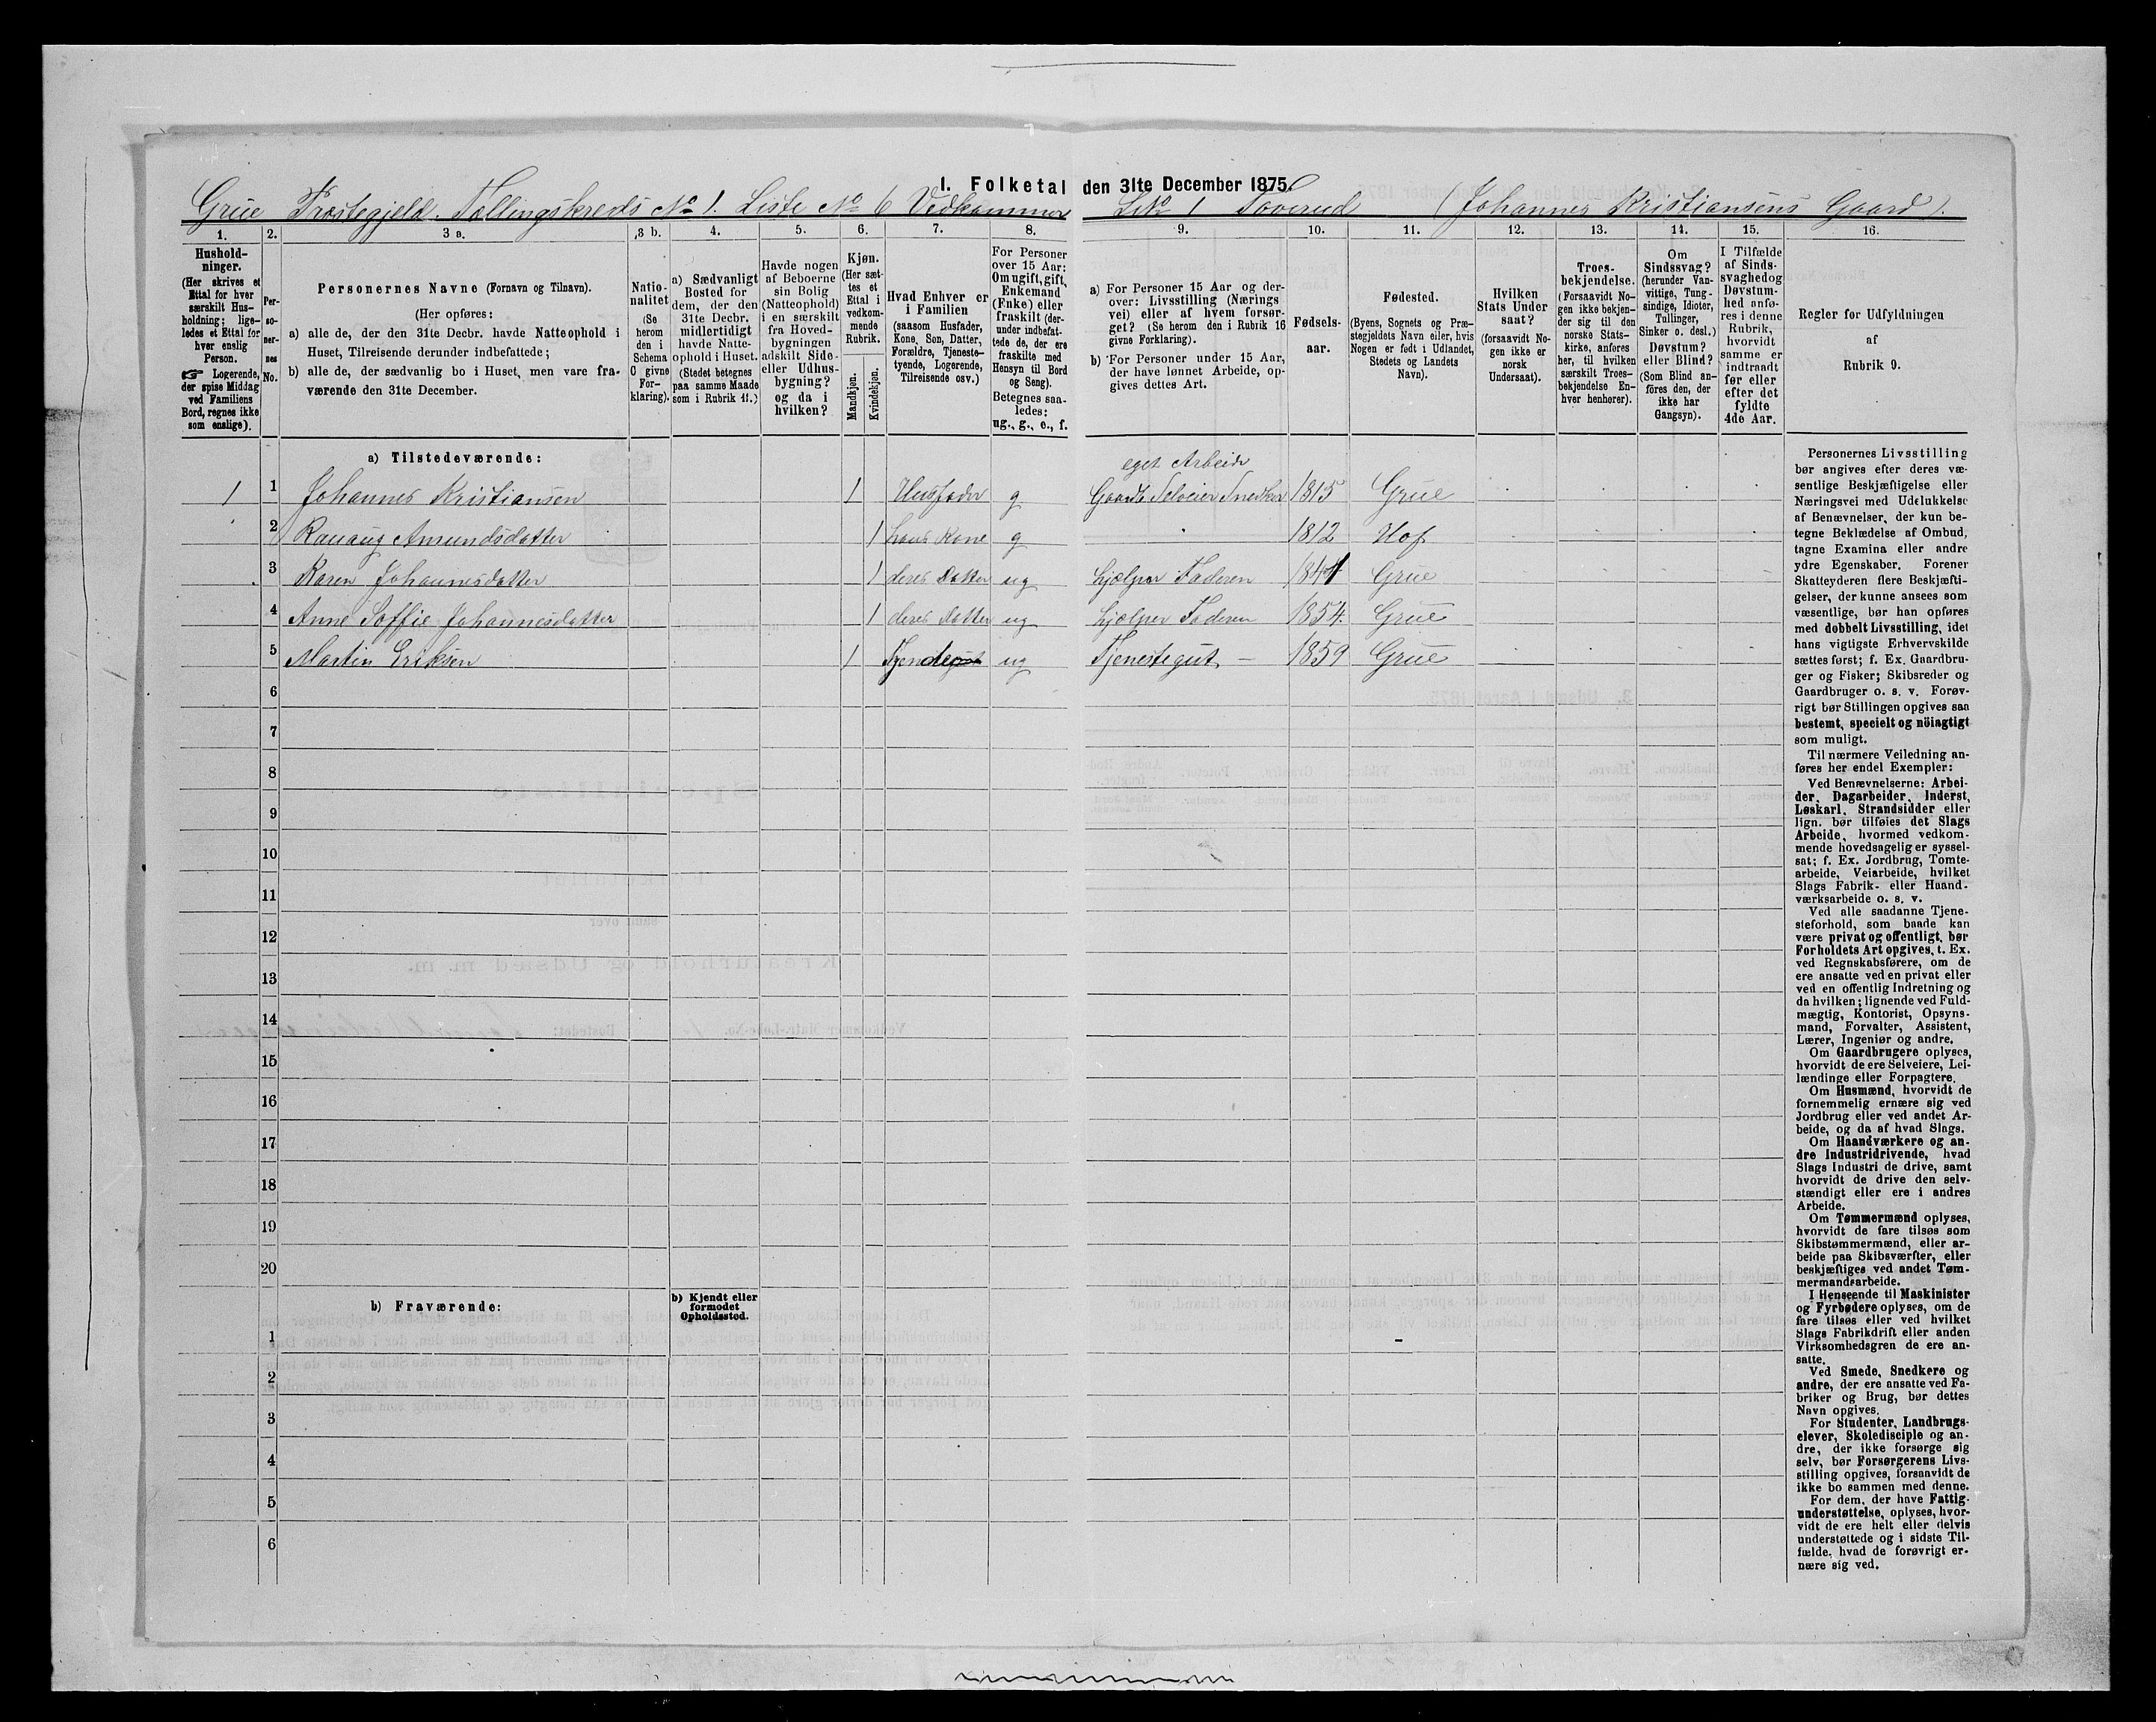 I. Folketal den 31te December 1875.
Grue Præstegjeld. Tællingskreds No 1. Liste No 6 Vedkommer L.No 1 Toverud (Johannes Kristiansens Gaard).
1. 2. 3 a. 3 b. 4. 5. 6. 7. 8. 9. 10. 11. 12. 13. 14. 15. 16.
Hushold-
ninger.
(Her skrives et
Ettal for hver
særskilt Hus-
holdning; lige-
ledes et Ettal for
hver enslig
Person.
☞ Logerende,
der spise Middag
ved Familiens
Bord, regnes ikke
som enslige).
Per-
so-
ner-
nes
No.
Personernes Navne (Fornavn og Tilnavn).
(Her opføres:
a) alle de, der den 31te Decbr. havde Natteophold i
Huset, Tilreisende derunder indbefattede;
b) alle de, der sædvanlig bo i Huset, men vare fra-
værende den 31te December.
Natio-
nalitet
(Se
herom
den i
Schema
O givne
For-
klaring).
a) Sædvanligt
Bosted for
dem, der den
31te Decbr.
midlertidigt
havde Natte-
ophold i Huset.
(Stedet betegnes
paa samme Maade
som i Rubrik 11.)
Havde nogen
af Beboerne
sin Bolig
(Natteophold)
i en særskilt
fra Hoved-
bygningen
adskilt Side-
eller Udhus-
bygning?
og da i
hvilken?
Kjøn.
(Her sæt-
tes et
Ettal i
vedkom-
mende
Rubrik.
Mandkjøn.
Kvindekjøn.
Hvad Enhver er
i Familien
(saasom Husfader,
Kone, Søn, Datter,
Forældre, Tjeneste-
tyende, Logerende,
Tilreisende osv.)
For Personer
over 15 Aar:
Om ugift, gift,
Enkemand
(Enke) eller
fraskilt (der-
under indbefat-
tede de, der ere
fraskilte med
Hensyn til Bord
og Seng).
Betegnes saa-
ledes:
ug., g., e., f.
a) For Personer 15 Aar og der-
over: Livsstilling (Nærings
vei) eller af hvem forsør-
get? (Se herom den i Rubrik 16
givne Forklaring).
b) For Personer under 15 Aar,
der have lønnet Arbeide, op-
gives dettes Art.
Fødsels-
aar.
Fødested.
(Byens, Sognets og Præ-
stegjeldets Navn eller, hvis
Nogen er født i Udlandet,
Stedets og Landets
Navn).
Hvilken
Stats Under
saat?
(forsaavidt No-
gen ikke er
norsk
Undersaat).
Troes-
bekjendelse.
(Forsaavidt No-
gen ikke bekjen-
der sig til den
norske Stats-
kirke, anføres
her, til hvilken
særskilt Troes-
bekjendelse En-
hver henhører).
Om
Sindssvag?
(herunder Van-
vittige, Tung-
sindige, Idioter,
Tullinger,
Sinker o. desl.)
Døvstum?
eller Blind?
(Som Blind an-
føres den, der
ikke har
Gangsyn).
I Tilfælde
af Sinds-
svaghedog
Døvstum-
hed anfø-
res i denne
Rubrik,
hvorvidt
samme er
indtraadt
før eller
efter det
fyldte
4de Aar.
Regler for Udfyldningen
af
Rubrik 9.
a) Tilstedeværende:
eget Arbeide
1 1 Johannes Kristiansen 1 Husfader g Gaardb. Selveier Snedker 1815 Grue
2 Ranaug Amundsdatter 1 hans Kone g 1812 Hof
3 Karen Johannesdatter 1 deres Datter ug hjælper Faderen Grue
4 Anne Soffie Johannesdatter 1 deres Datter ug hjælper Faderen 1854 Grue
5 Martin Eriksen 1 ug Tjenestegut 1859 Grue
6
7
8
9
10
11
12
13
14
15
16
17
18
19
20
b) Fraværende:
b) Kjendt eller
formodet
Opholdssted.
1
2
3
4
5
6
Personernes Livsstilling
bør angives efter deres væ-
sentlige Beskjæftigelse eller
Næringsvei med Udelukkelse
af Benævnelser, der kun be-
tegne Beklædelse af Ombud,
tagne Examina eller andre
ydre Egenskaber. Forener
Skatteyderen flere Beskjæfti-
gelser, der kunne ansees som
væsentlige, bør han opføres
med dobbelt Livsstilling, idet
hans vigtigste Erhvervskilde
sættes først; f. Ex. Gaardbru-
ger og Fisker; Skibsreder og
Gaardbruger o. s. v. Forøv-
rigt bør Stillingen opgives saa
bestemt, specielt og nöiagtigt
som muligt.
Til nærmere Veiledning an-
føres her endel Exempler:
Ved Benævnelserne: Arbei-
der, Dagarbeider, Inderst,
Løskarl, Strandsidder eller
lign. bør tilføies det Slags
Arbeide, hvormed vedkom-
mende hovedsagelig er syssel-
sat; f. Ex. Jordbrug, Tomte-
arbeide, Veiarbeide, hvilket
Slags Fabrik- eller Haand-
værksarbeide o. s. v.
Ved alle saadanne Tjene-
steforhold, som baade kan
være privat og offentligt, bør
Forholdets Art opgives, t. Ex.
ved Regnskabsførere, om de
ere ansatte ved en privat eller
ved en offentlig Indretning og
da hvilken; lignende ved Fuld-
mægtig, Kontorist, Opsyns-
mand, Forvalter, Assistent,
Lærer, Ingeniør og andre.
Om Gaardbrugere oplyses,
hvorvidt de ere Selveiere, Lei-
lændinge eller Forpagtere.
Om Husmænd, hvorvidt de
fornemmelig ernære sig ved
Jordbrug eller ved andet Ar-
beide, og da af hvad Slags.
Om Haandværkere og an-
dre Industridrivende, hvad
Slags Industri de drive, samt
hvorvidt de drive den selv-
stændigt eller ere i andres
Arbeide.
Om Tømmermænd oplyses,
hvorvidt de fare tilsøs som
Skibstømmermænd, eller ar-
beide paa Skibsværfter, eller
beskjæftiges ved andet Tøm-
mermandsarbeide.
I Henseende til Maskinister
og Fyrbødere oplyses, om de
fare tilsøs eller ved hvilket
Slags Fabrikdrift eller anden
Virksomhedsgren de ere an-
satte.
Ved Smede, Snedkere og
andre, der ere ansatte ved Fa-
briker og Brug, bør dettes
Navn opgives.
For Studenter, Landbrugs-
elever, Skoledisciple og an-
dre, der ikke forsørge sig
selv, bør Forsørgerens Livs-
stilling opgives, forsaavidt de
ikke bo sammen med denne.
For dem, der have Fattig-
understøttelse, oplyses, hvor-
vidt de ere helt eller delvis
understøttede og i sidste Til-
fælde, hvad de forøvrigt er-
nære sig ved.